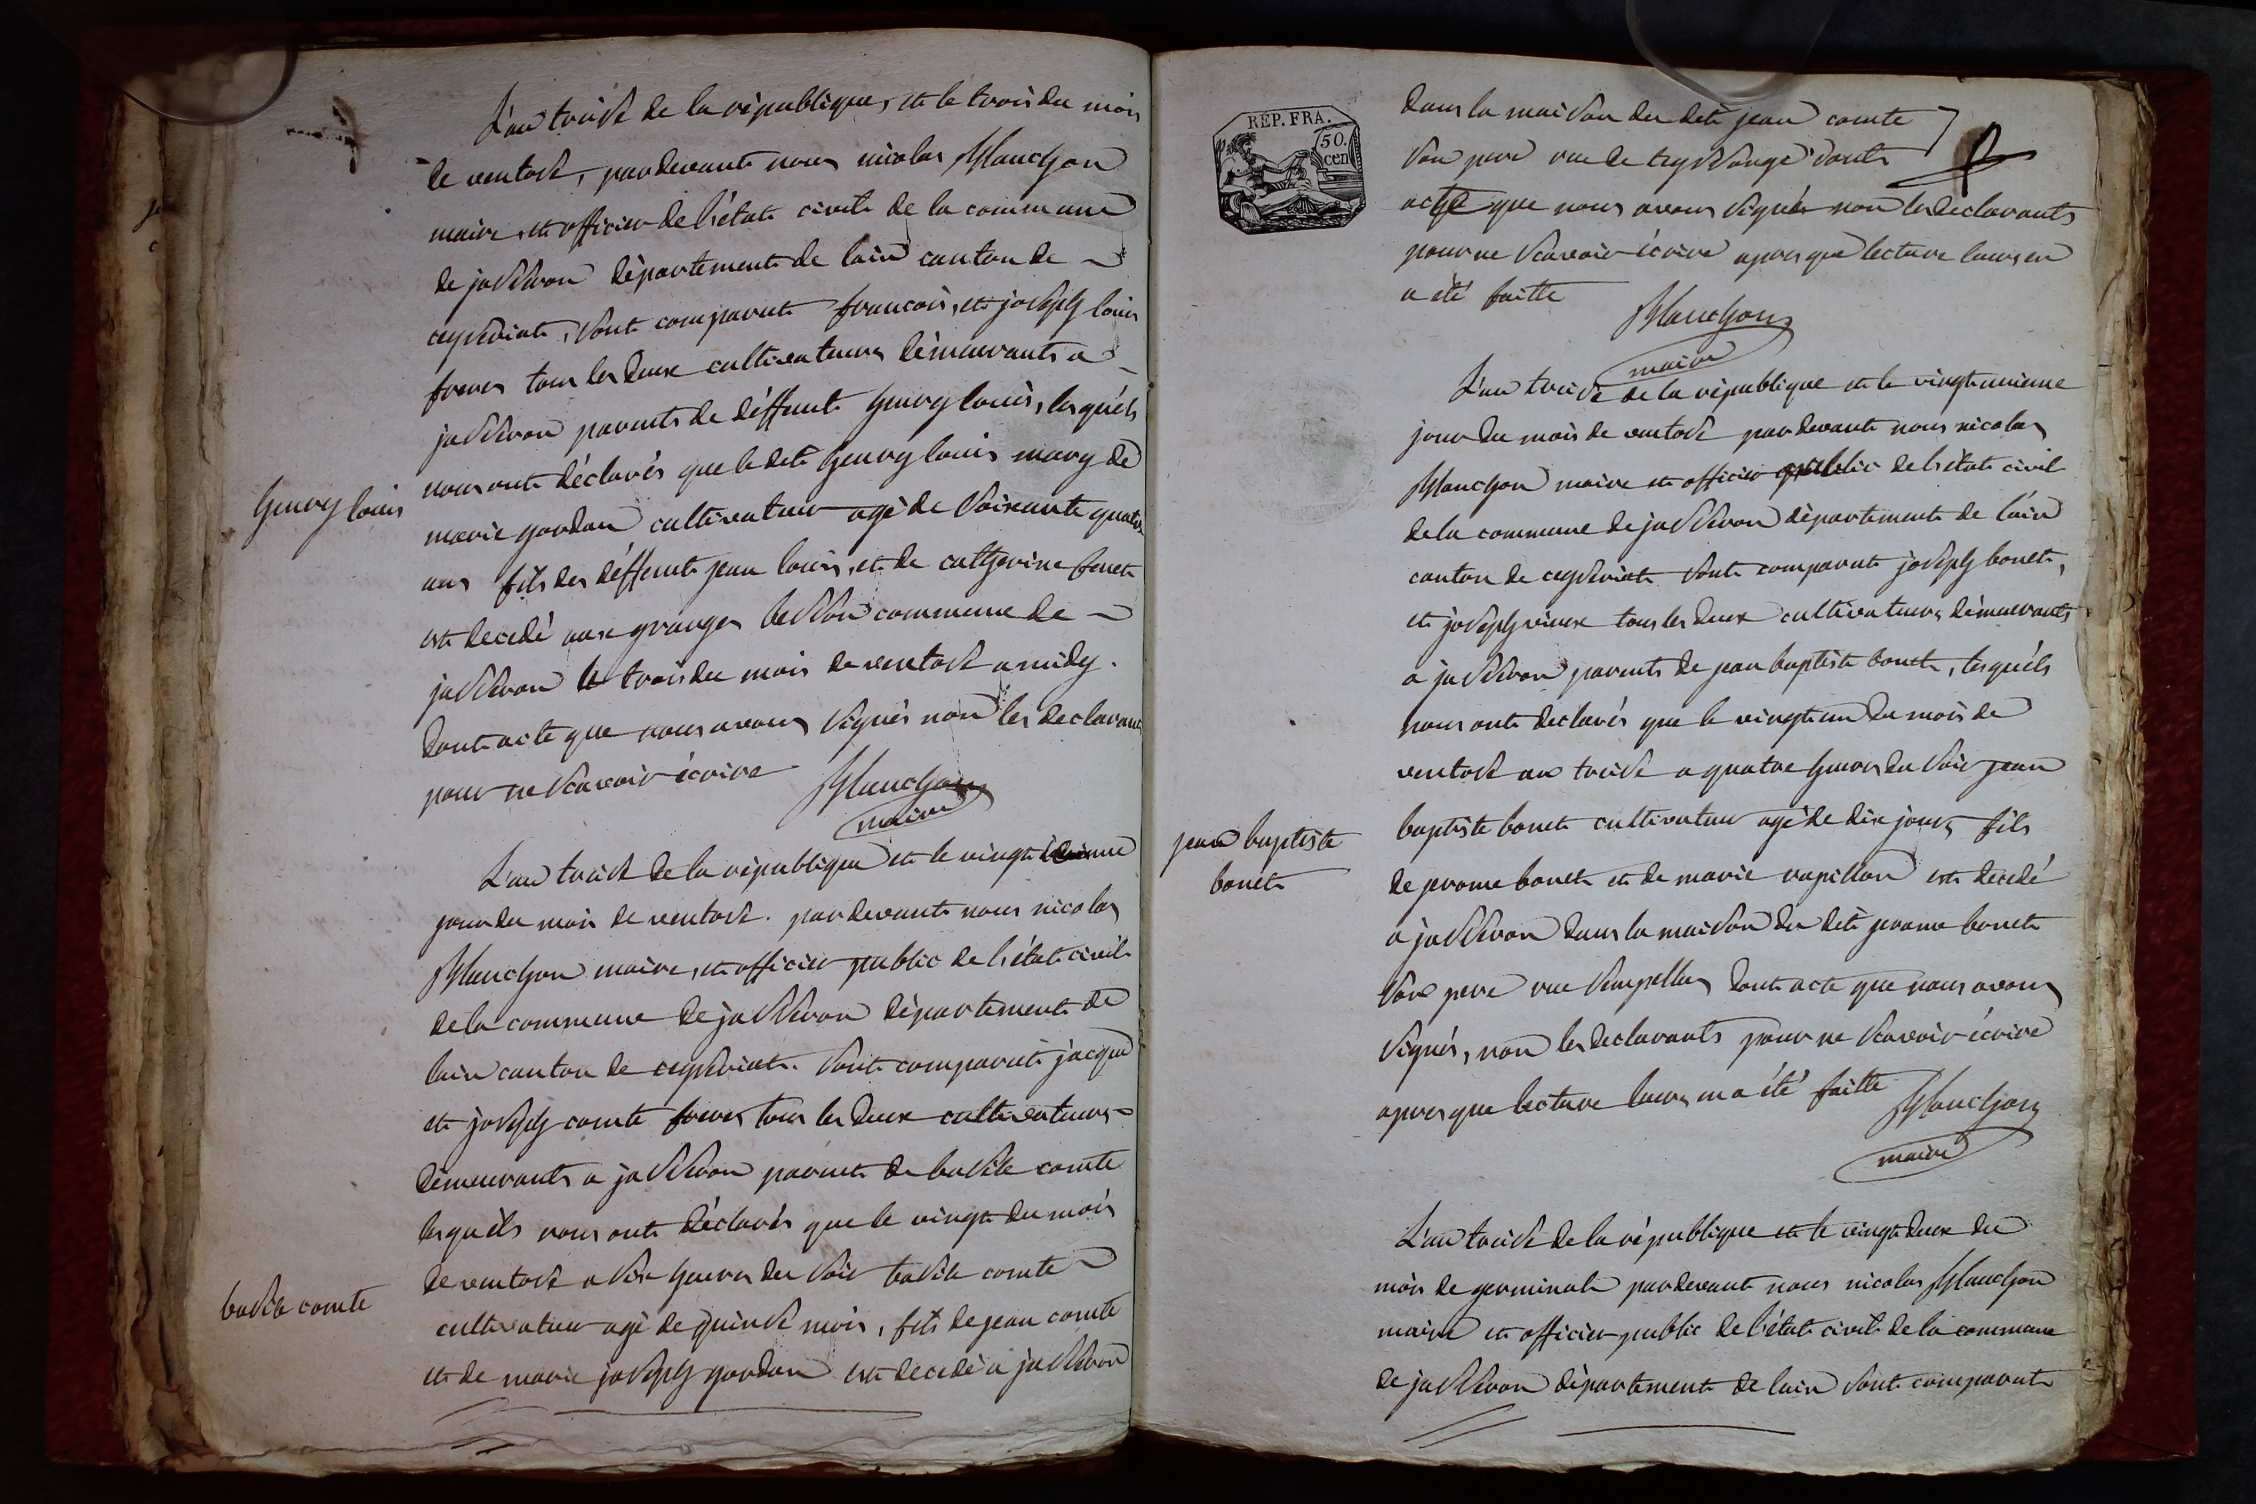 L'an treise de la république, et le trois du mois
de ventose, pardevant nous nicolas Blanchon
maire, et officier de l'état civil de la commune
de jasseron département de lain canton de
ceyseriat, sont comparut francois, et joseph louis
freres tous les deux cultivateurs démeurants a
jasseron parents de déffunt henry louis, lesquéls
nous ont déclarés que le dit henry louis mary de
henry louis
marie gordan cultivateur agé de soixante quatre
ans fils des déffunt jean louis, et de catherine
est decedé aux granges besson commune de
jasseron le trois du mois de ventose a midy.
dont acte que nous avons signés non les declarants
pour ne scavoir écrire
Blanchon
maire
L'an treise de la république et le vingtieme
jour du mois de ventose. pardevant nous nicolas
Blanchon maire, et officier public de l'état civil
de la commune de jasseron département de
lain canton de ceyseriat. sont comparut jacque
et joseph comte freres tous les deux cultivateurs
démeurants a jasseron parent de basile comte
lesquéls nous ont déclarés que le vingt du mois
de ventose a six heures du soir basile comte
basile comte
cultivateur agé de quinse mois, fils de jean comte
et de marie joseph gordan est decedé a jasseron
REP. FRA.
50.
cen
dans la maison du dit jean comte
son pere rue de teyssonge dont
acte que nous avons signés non les declarants
pour ne scavoir écrire apres que lecture leurs en
a été faitte
Blanchon
maire
L'an treise de la république et le vingt unieme
jour du mois de ventose pardevant nous nicolas
Blanchon maire et officier public de l'état civil
de la commune de jasseron département de l'ain
canton de ceyseriat sont comparut joseph bonet,
et joseph vieux tous les deux cultivateurs démeurants
a jasseron parents de jean baptiste bonet, lesquéls
nous ont declarés que le vingt un du mois de
ventose an treise a quatre heures du soir jean
jean baptiste
bonet
baptiste bonet cultivateur agé de dix jours fils
de jerome bonet et de marie rapillon est decedé
a jasseron dans la maison du dit jerome bonet
son pere rue dont acte que nous avons
signés, non les declarants pour ne scavoir écrire
apres que lecture leurs en a été faitte
Blanchon
maire
L'an treise de la république et le vingt deux du
mois de germinal pardevant nous nicolas Blanchon
maire et officier public de l'état civil de la commune
de jasseron département de lain sont comparut